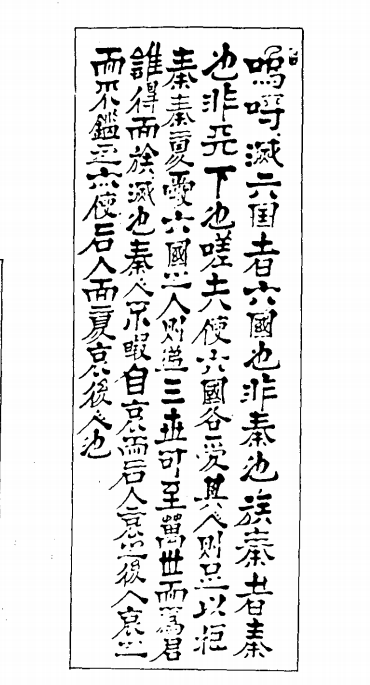 嗚呼滅六囯者六國也非秦也族秦者秦
也非天下也嗟夫使六國各愛其人則足以拒
秦秦复愛六國之人則递三世可至萬世而爲君
誰得而族滅也秦人不暇自哀而后人哀之後人哀之
而不鑑之亦使后人而复哀後人也